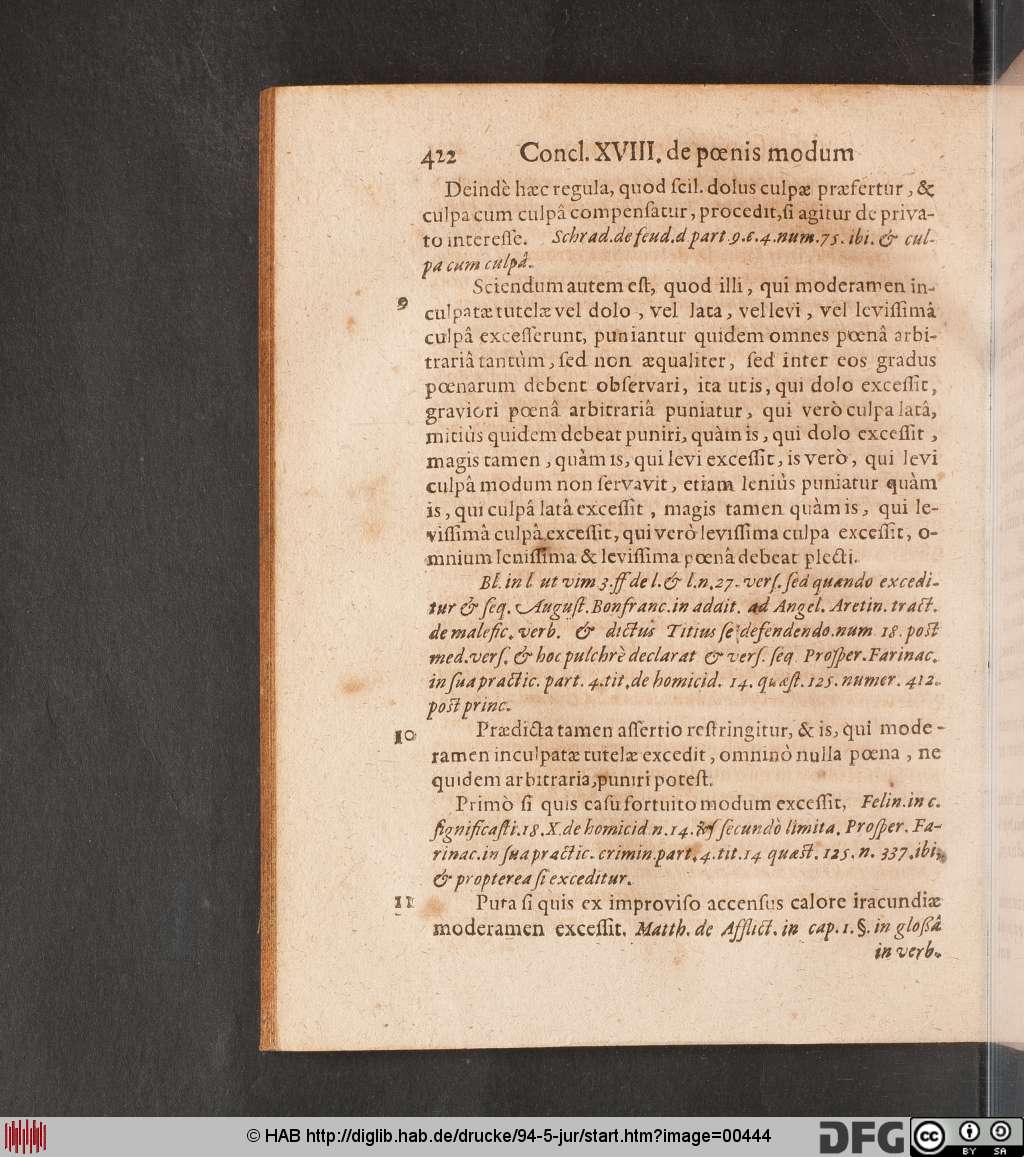 422 Concl. XVIII. de pœnis modum
Deindè hæc regula, quod ſcil. dolus culpæ præfertur, &
culpa cum culpâ compenſatur, procedit, ſi agitur de priva-
to intereſſe. Schrad. de feud. d part. 9. c. 4. num. 75. ibi. & cul-
pa cum culpâ.
9 Sciendum autem eſt, quod illi, qui moderamen in-
culpatæ tutelæ vel dolo, vel lata, vel levi, vel leviſſimâ
culpâ exceſſerunt, puniantur quidem omnes pœnâ arbi-
trariâ tantùm, ſed non æqualiter, ſed inter eos gradus
pœnarum debent obſervari, ita ut is, qui dolo exceſſit,
graviori pœnâ arbitrariâ puniatur, qui verò culpa latâ,
mitiùs quidem debeat puniri, quàm is, qui dolo exceſſit,
magis tamen, quàm is, qui levi exceſſit, is verò, qui levi
culpâ modum non ſervavit, etiam leniùs puniatur quàm
is, qui culpâ latâ exceſſit, magis tamen quàm is, qui le-
viſſimâ culpâ exceſſit, qui verò leviſſima culpa exceſſit, o-
mnium leniſſima & leviſſima pœnâ debeat plecti.
Bl. in l. ut vim 3. ff de l. & l. n. 27. verſ. ſed quando excedi-
tur & ſeq. Auguſt. Bonfranc. in addit. ad Angel. Aretin. tract.
de malefic. verb. & dictus Titius ſe defendendo. num 18. poſt
med. verſ. & hoc pulchrè declarat & verſ. ſeq. Proſper. Farinac.
in ſua practic. part. 4. tit. de homicid. 14. quæſt. 125. numer. 412.
poſt princ.
10 Prædicta tamen aſſertio reſtringitur, & is, qui mode-
ramen inculpatæ tutelæ excedit, omninò nulla pœna, ne
quidem arbitraria, puniri poteſt.
Primò ſi quis caſu fortuito modum exceſſit, Felin. in c.
ſignificaſti. 18. X. de homicid. n. 14. ſecundò limita. Proſper. Fa-
rinac. in ſua practic. crimin. part. 4. tit. 14 quæſt. 125. n. 337. ibi,
& propterea ſi exceditur.
11 Puta ſi quis ex improviſo accenſus calore iracundiæ
moderamen exceſſit. Matth. de Afflict. in cap. 1. §. in gloßâ
in verb.
© HAB http://diglib.hab.de/drucke/94-5-jur/start.htm?image=00444
DFG
cc BY SA